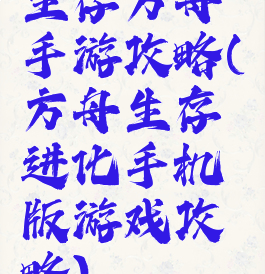 生存方舟
手游攻略(
方舟生存
进化手机
版游戏攻
略)